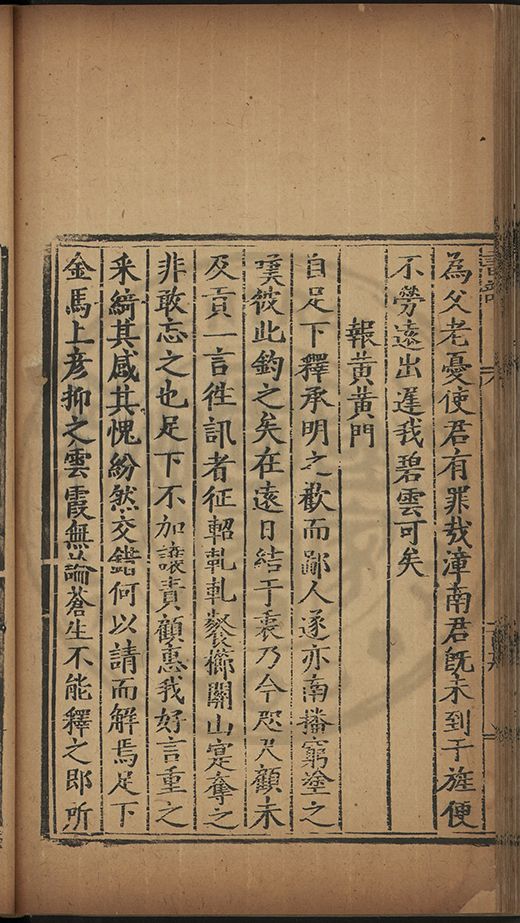 為父老憂使君有罪哉漳南君既未到于旌便
不勞遠出遲我碧雲可矣
報黃黃門
自足下釋承明之歡而鄙人遂亦南播窮塗之
嘆彼此鈞之矣在遠日結于衷乃今咫尺顧未
及貢一言徃訊者征軺軋軋𩜹櫛關山寔奪之
非敢忘之也足下不加譲責顧惠我好言重之
来綺其感其愧紛然交錯何以請而解焉足下
金馬上彦抑之雲霞無論蒼生不能釋之即所